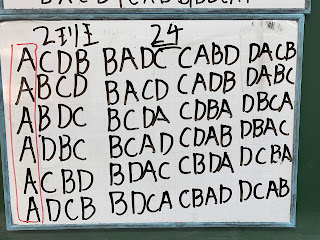 24
ACDB BADC CABD DACB
ABCD BACD CADB DABC
ABDC BCDA CDBA DBCA
ADBC BCAD CDAB DBAC
ACBD BDAC CBDA DCBA
ADCB BDCA CBAD DCAB